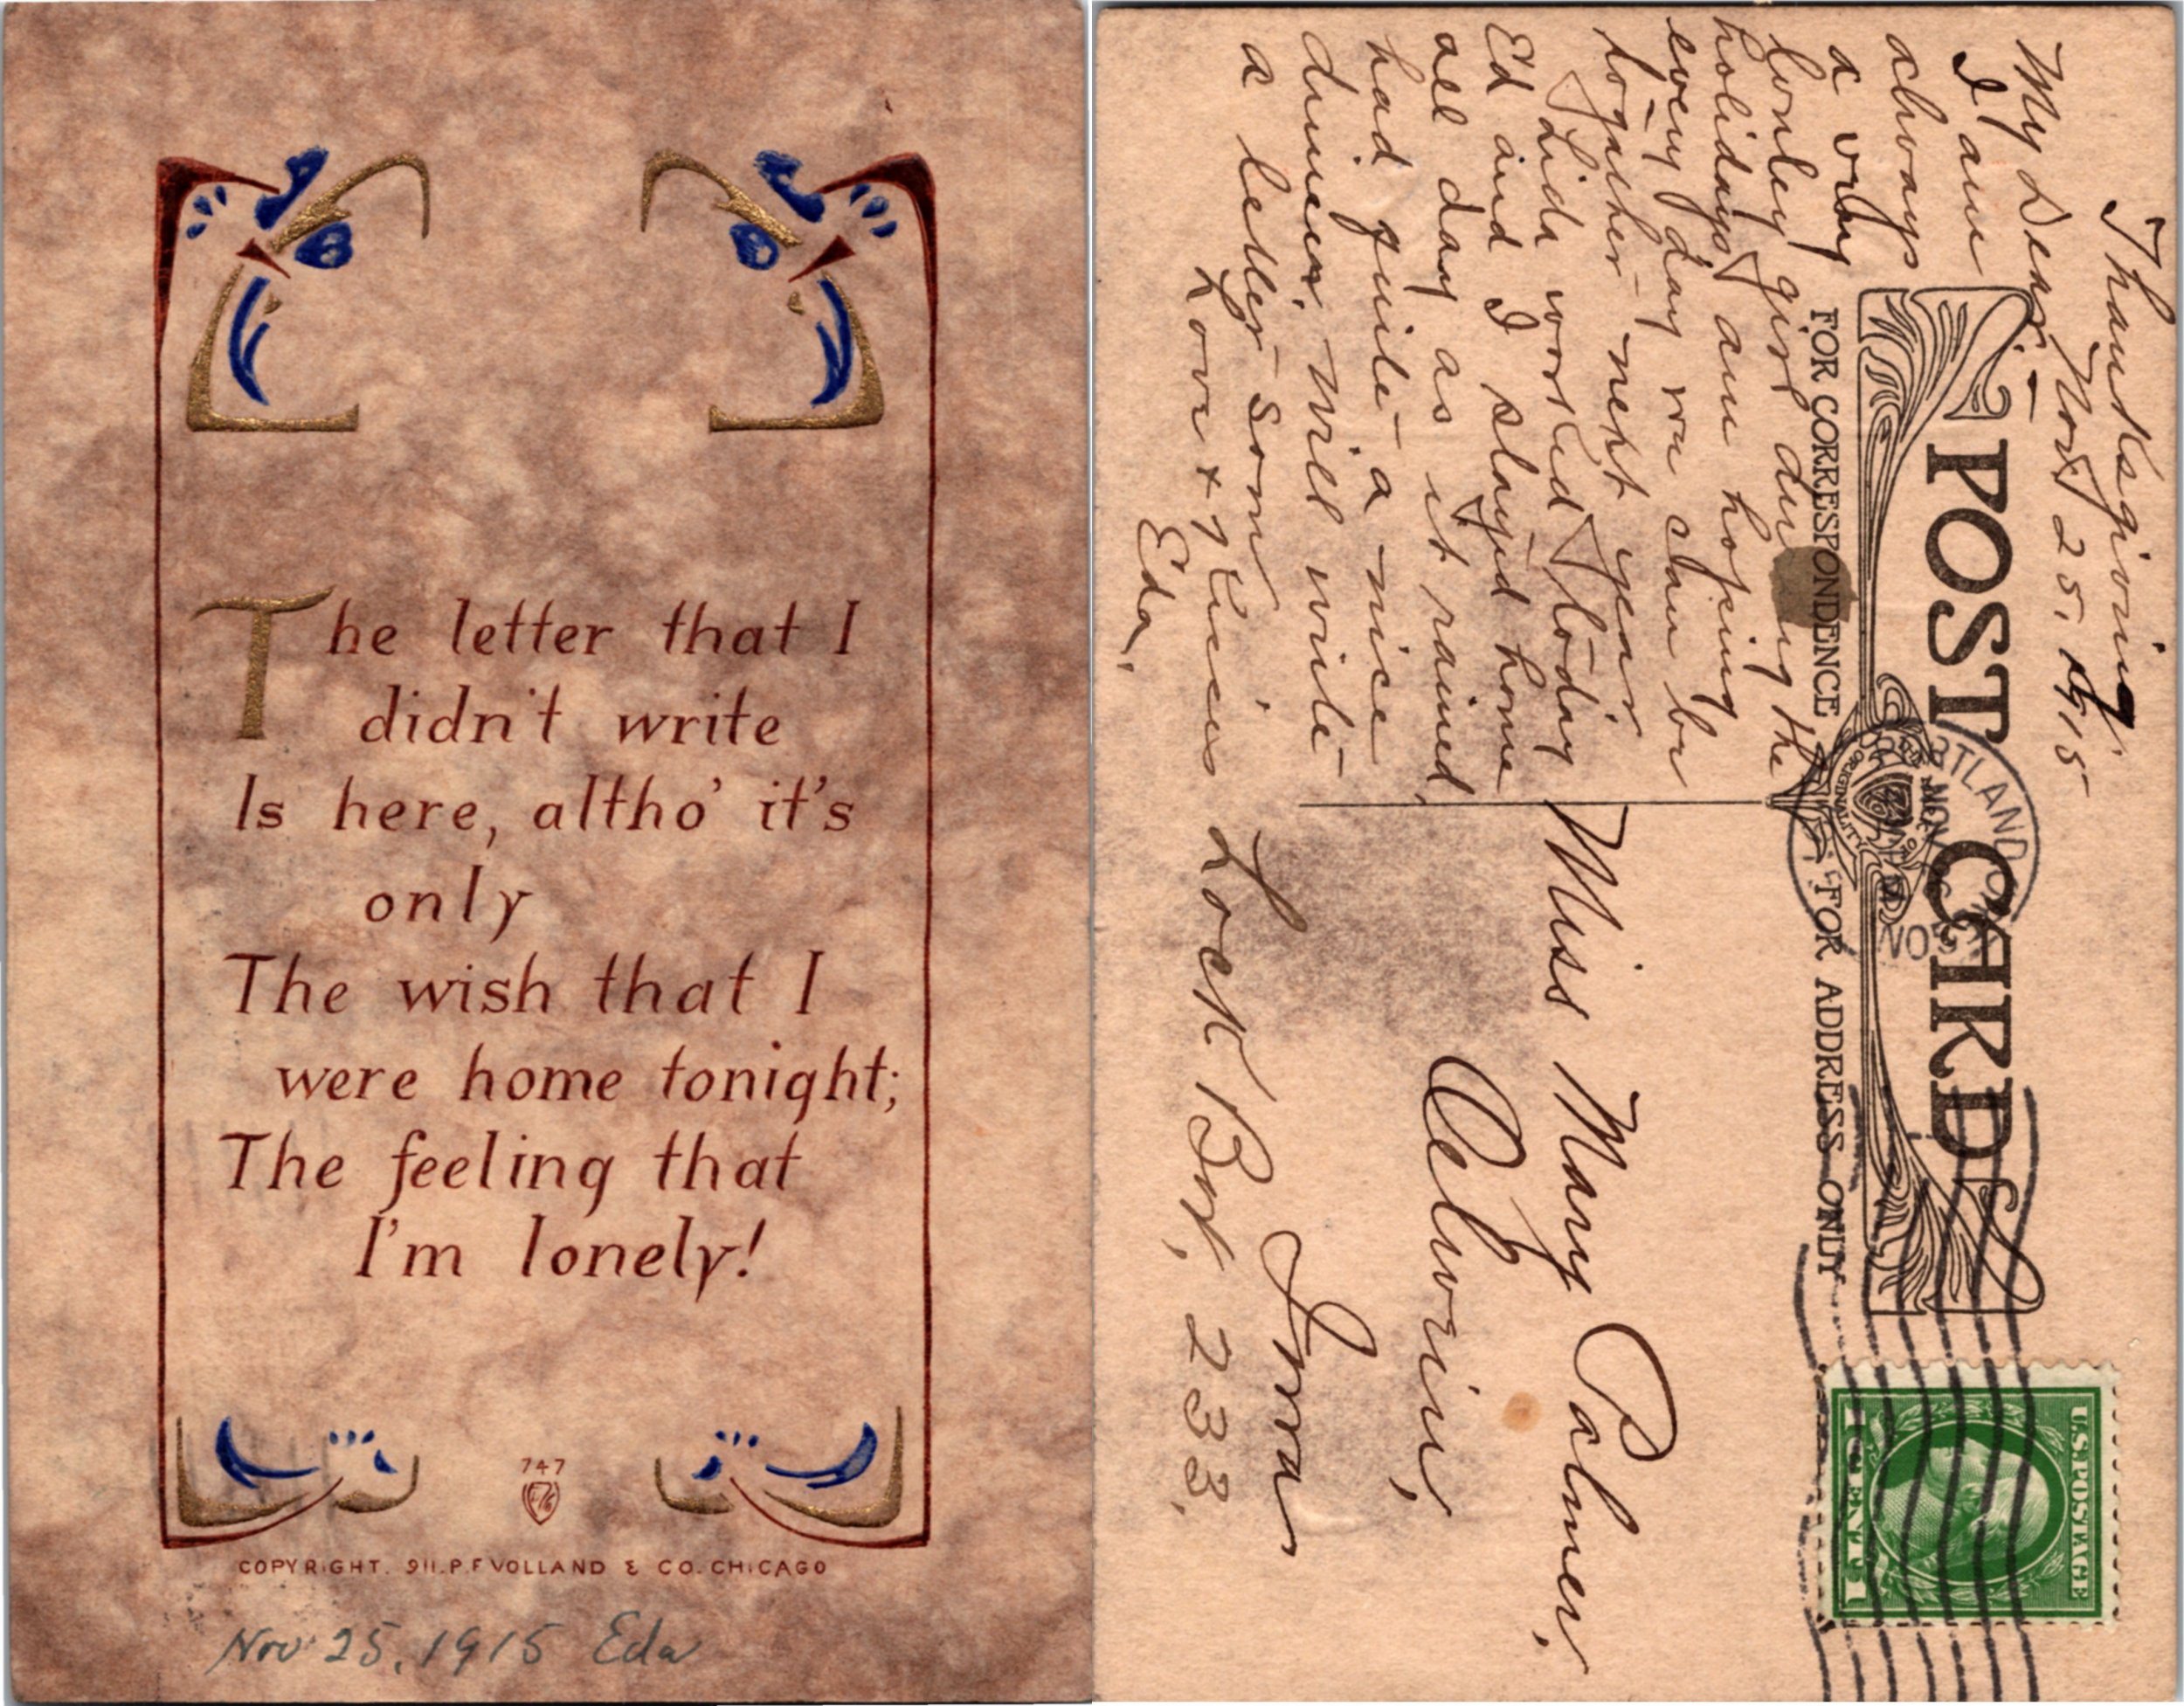 The letter that I
didn't write
Is here, altho' it's
only
The wish that I
were home tonight;
The feeling that
I'm lonely!
747
COPYRIGHT. 911. P. F. VOLLAND & CO. CHICAGO
Nov 25, 1915 Eda
Thanksgiving.
Nov 25, 1915
My Dear:—
I am
always
a very
lonley girl during the
holidays, am hoping
every day we can be
togather next year,
Lida worked today
Ed and I stayed home
all day as it rained,
had quite a nice
dinner, Will write
a letter soon,
Love +
Eda.
POST CARD
FOR CORRESPONDENCE
FOR ADDRESS ONLY
PORTLAND
NOV
U.S. POSTAGE
1 CENT 1
Miss Mary Palmer,
Oelwein,
Iowa
Lock Box, 233.